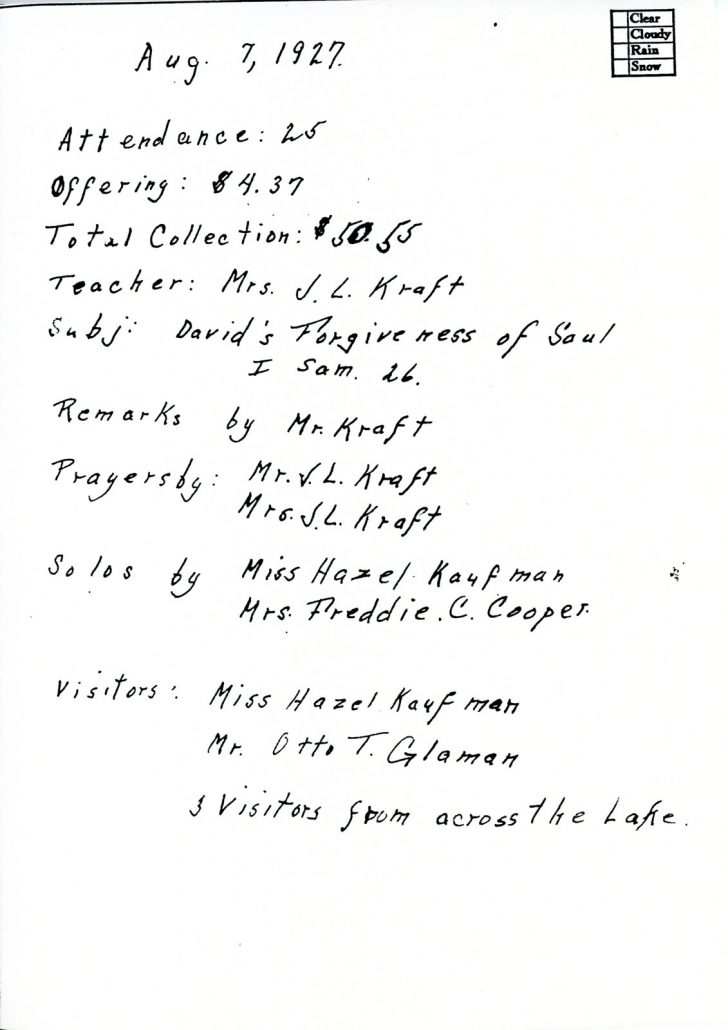 Clear
Cloudy
Rain
Snow
Aug. 7, 1927.
Attendance: 25
Offering: $4.37
Total Collection: $50.55
Teacher: Mrs. J. L. Kraft
Subj: David's Forgiveness of Saul
I Sam. 26.
Remarks by Mr. Kraft
Prayers by: Mr. J. L. Kraft
Mrs. J. L. Kraft
Solos by Miss Hazel Kaufman
Mrs. Freddie. C. Cooper.
Visitors: Miss Hazel Kaufman
Mr. Otto T. Glaman
3 Visitors from across the Lake.